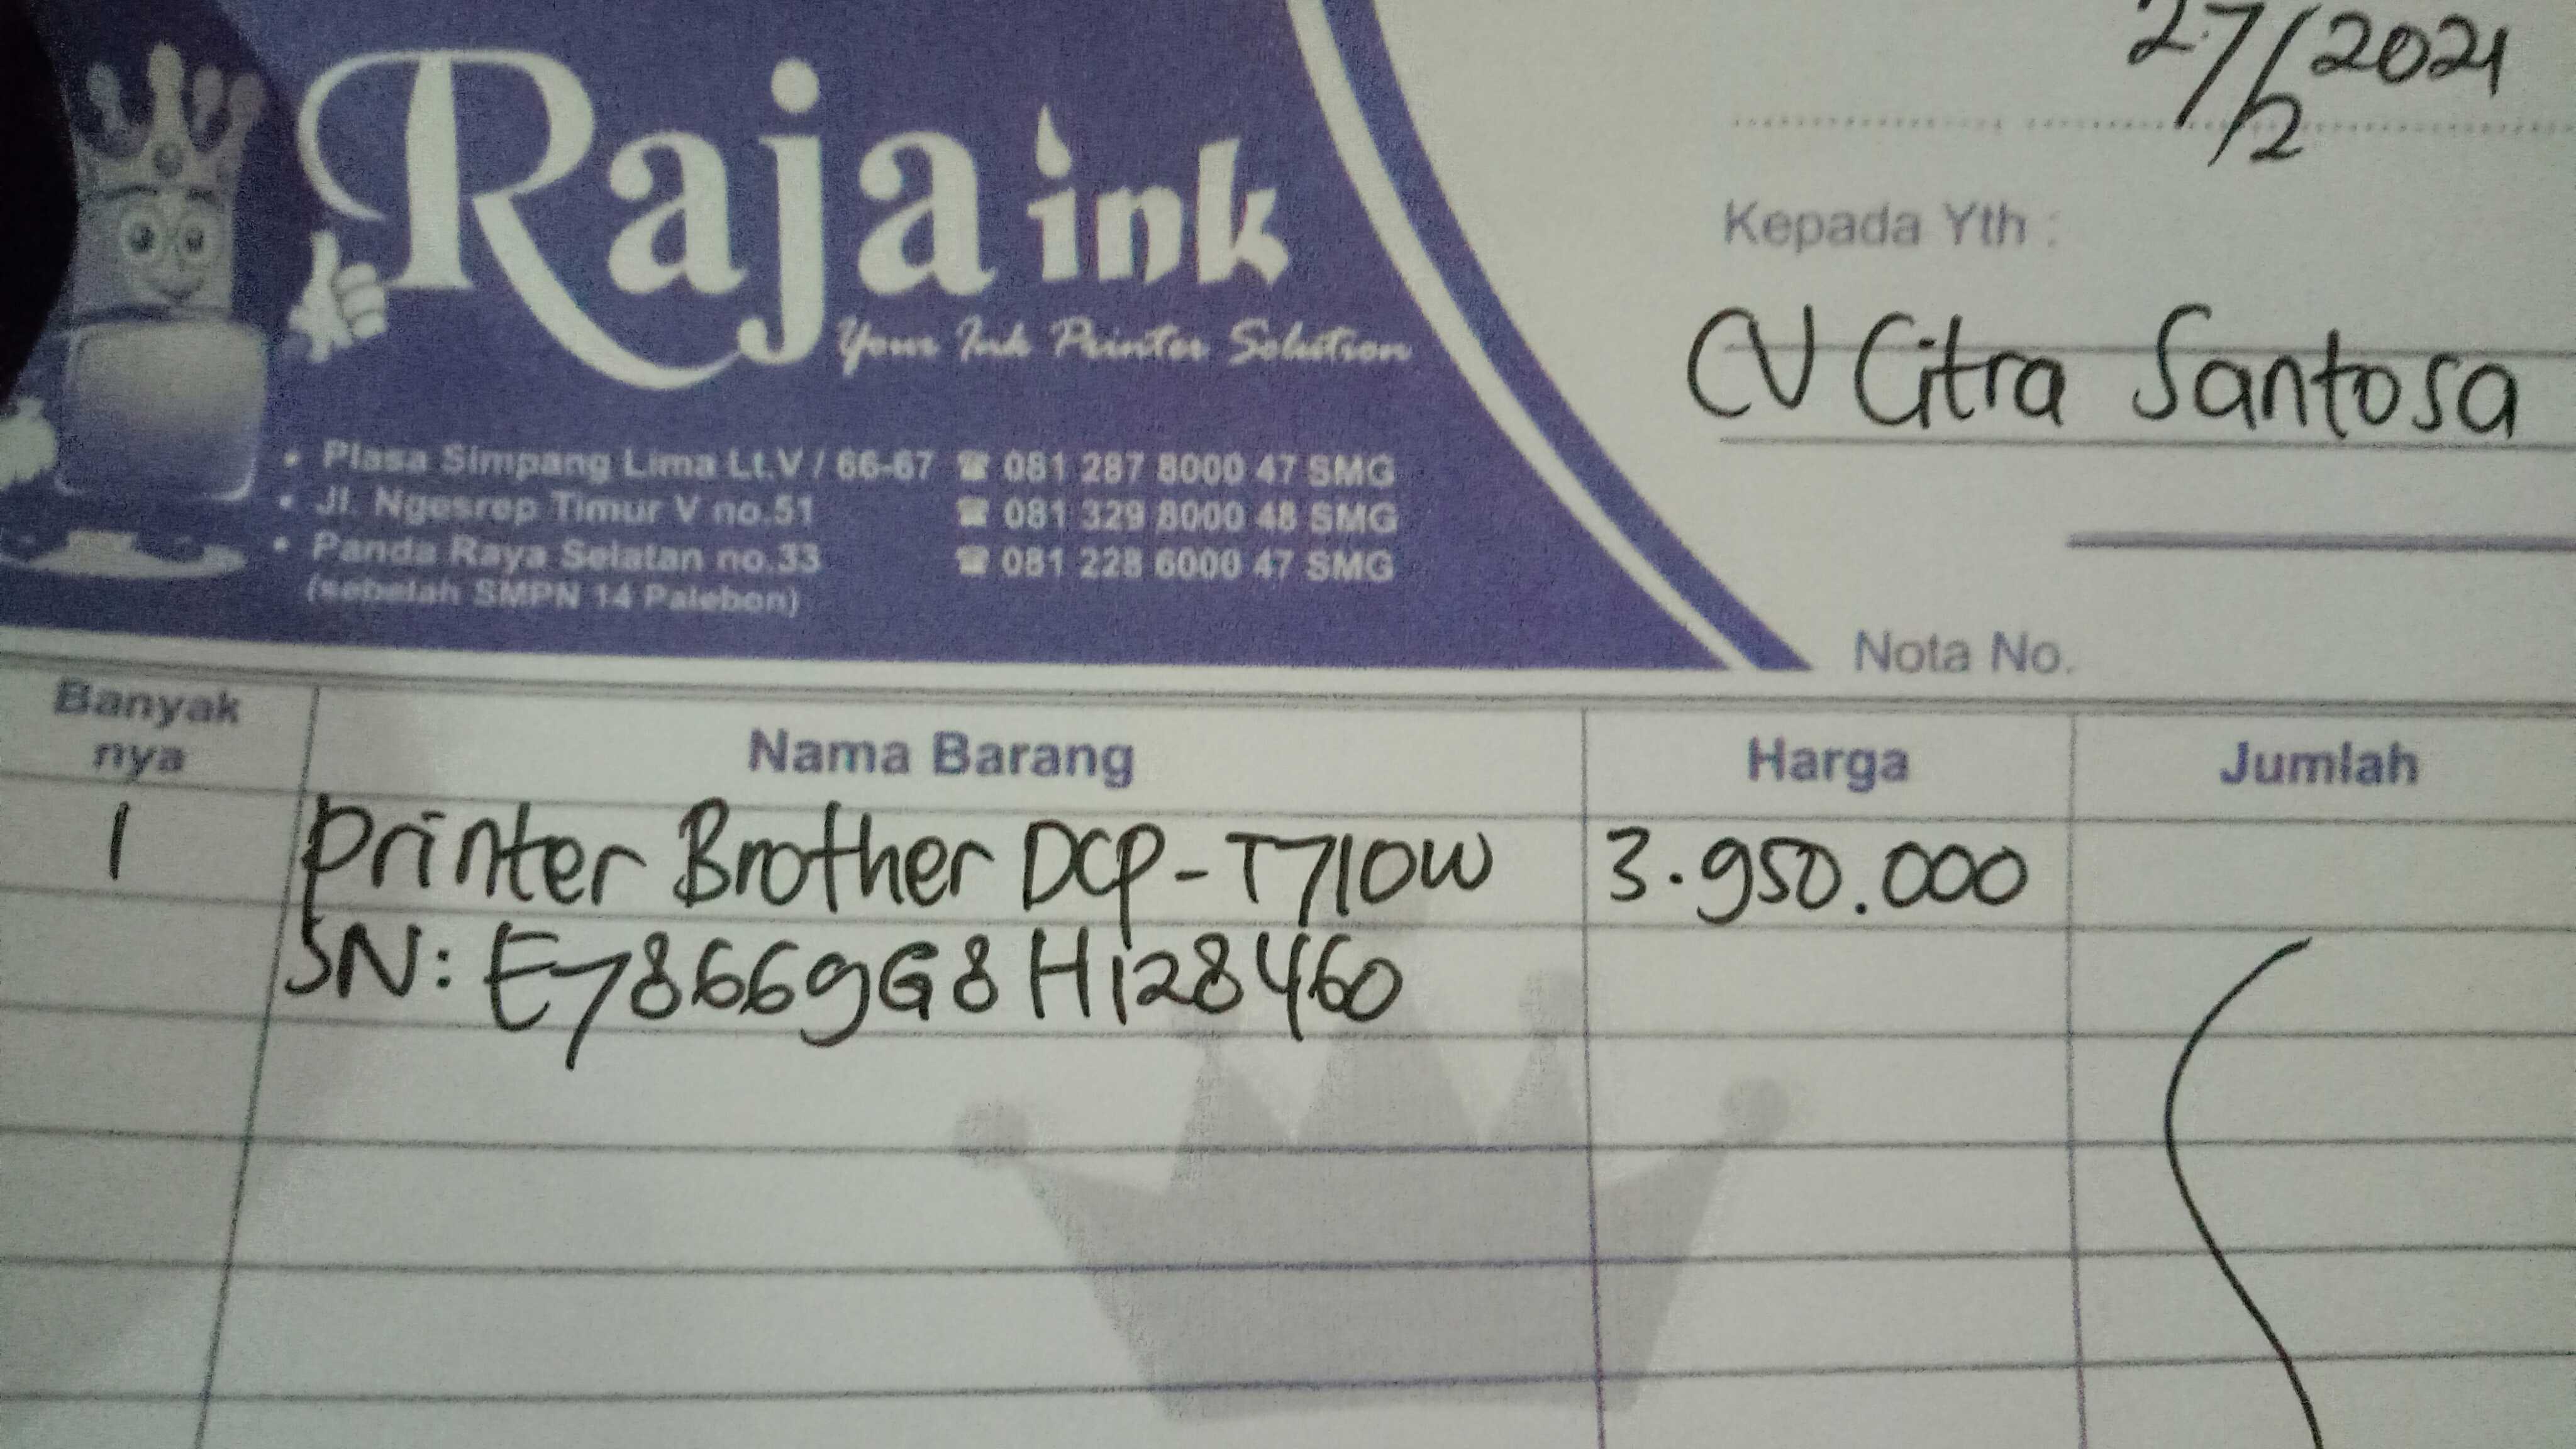 Raja ink
Your Ink Printer Solution
• Plasa Simpang Lima Lt.V / 66-67 ☎ 081 287 8000 47 SMG
• Jl. Ngesrep Timur V no.51 ☎ 081 329 8000 48 SMG
• Panda Raya Selatan no.33 ☎ 081 228 6000 47 SMG
(sebelah SMPN 14 Palebon)
27/2 2021
Kepada Yth :
CV Citra Santosa
Nota No.
Banyak nya Nama Barang Harga Jumlah
1 Printer Brother DCP-T710W 3.950.000
SN: E78669G8H128460